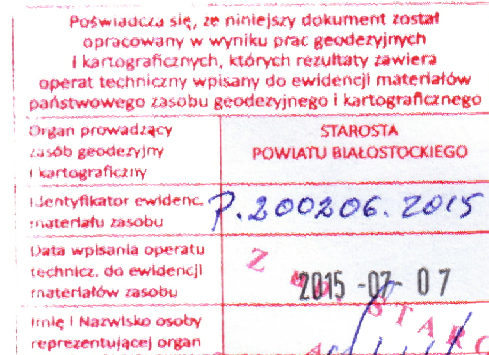 Poświadcza się, że niniejszy dokument został
opracowany w wyniku prac geodezyjnych
i kartograficznych, których rezultaty zawiera
operat techniczny wpisany do ewidencji materiałów
państwowego zasobu geodezyjnego i kartograficznego
Organ prowadzący
zasób geodezyjny
i kartograficzny
STAROSTA
POWIATU BIAŁOSTOCKIEGO
Identyfikator ewidenc.
materiału zasobu
P.200206.2015
Data wpisania operatu
technicz. do ewidencji
materiałów zasobu
2015 -07- 07
Imię i Nazwisko osoby
reprezentującej organ